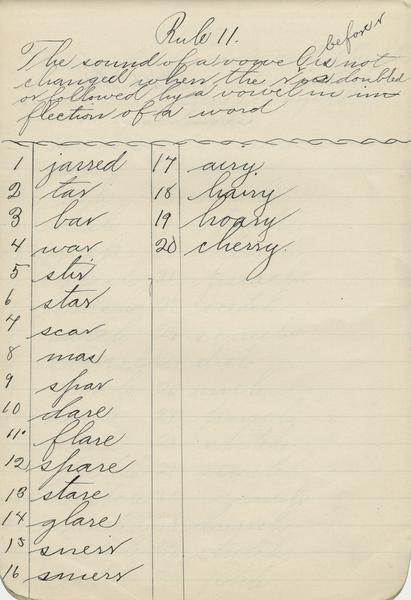 Rule 11.
before r
The sound of a vowel is not
changed when the r is doubled
or followed by a vowel in in
flection of a word
1 jarred
2 tar
3 bar
4 war
5 stir
6 star
7 scar
8 mar
9 spar
10 dare
11 flare
12 spare
13 stare
14 glare
15
16
17 airy
18 hairy
19 hoary
20 cherry.